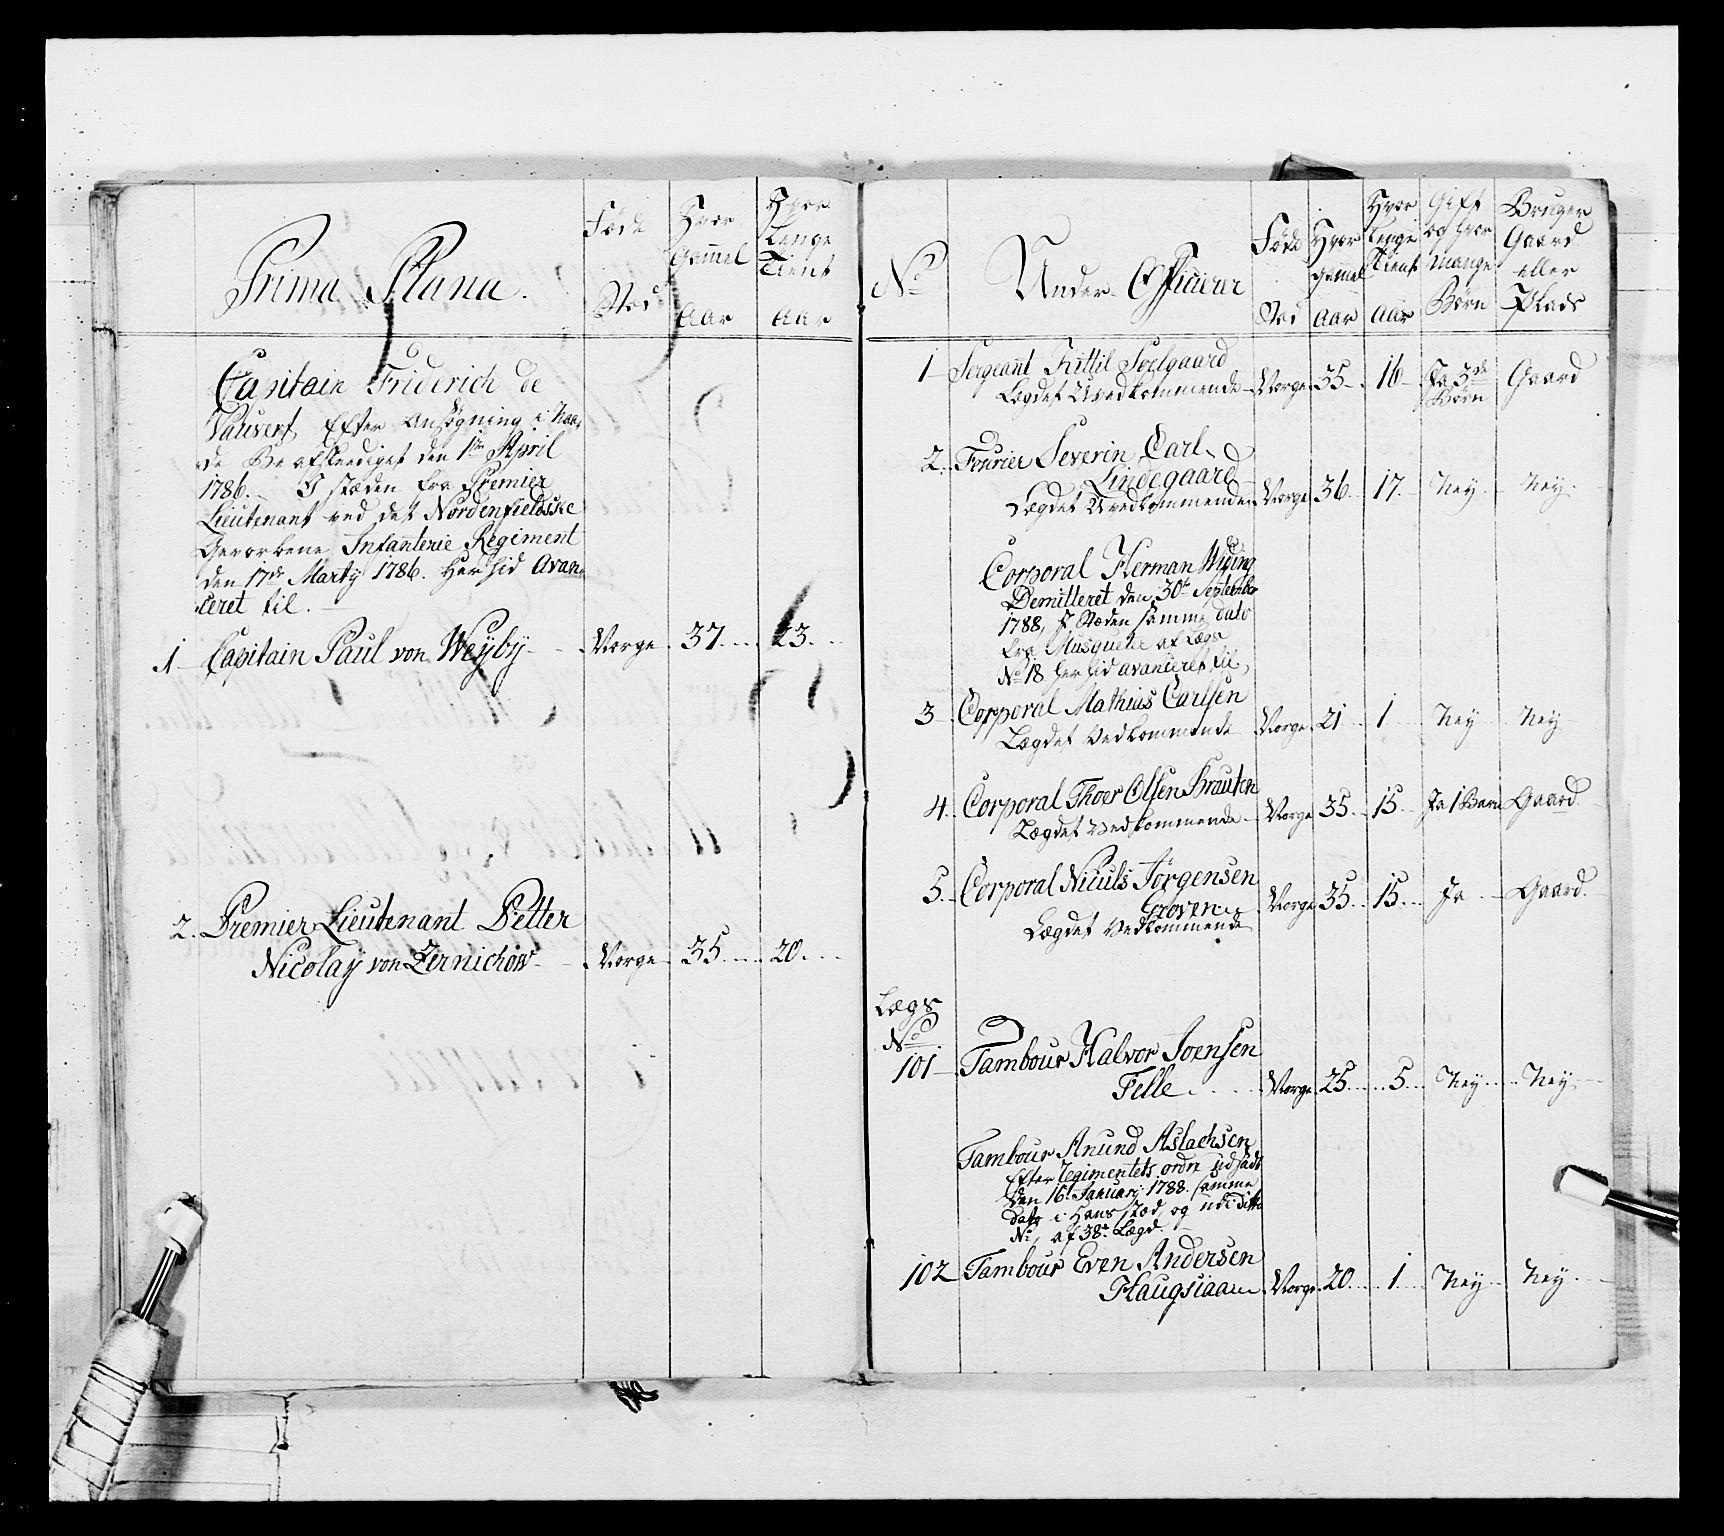 Prima Plana.
Føde Stod
Hvor Gammel Aar
Hvor Længe Tient Aar
Capitain Friderich de
Vauvert, Efter Ansøgning i Naa-
de Beafskeediget den 1te April
1786. I stæden fra Premier
Lieutenant ved det Nordenfieldske
Gevorbene Infanterie Regiment
den 17de Marty 1786. Her hid Avan-
ceret til.
1 Capitain Paul von Weyby Norge 37 23
2. Premier Lieutenant Petter
Nicolay von Zernichow Norge 35 20
No
Under-Officierer
Føde Stod
Hvor Gammel Aar
Hvor Længe Tient Aar
Gift og hvor mange Børn
Bruger Gaard eller Plads
1 Sergeant Kittil Soelgaard
Lægdet Uvedkommende Norge 35 16 Ja 3de Børn Gaard
2. Fourier Severin Carl
Lindegaard
Lægdet Uvedkommende Norge 36 17 Ney Ney
Corporal Herman
Demitteret den 30te September
1788, I Stæden samme dato
fra Musqueteer af Lægs
No 18 her hid avanceret til,
3 Corporal Mathias Carlsen
Lægdet Vedkommende Norge 21 1 Ney Ney
4. Corporal Thoer Olsen Brauten
Lægdet Vedkommende Norge 35 15 Ja 1 Barn Gaard
5. Corporal Niculs Jørgensen
Groven
Lægdet Vedkommende Norge 35 15 Ja Gaard
Lægs
No
101 Tambour Halvor Joensen
Felle Norge 25 5 Ney Ney
Tambour Anund Aslachsen
Efter Regimentets ordre udsadt
den 16 Januari 1788. samme
dato i Hans stod, og udi ditto
No, af 38te Lægd.
102 Tambour Even Andersen
Haugsiaan Norge 20 1 Ney Ney